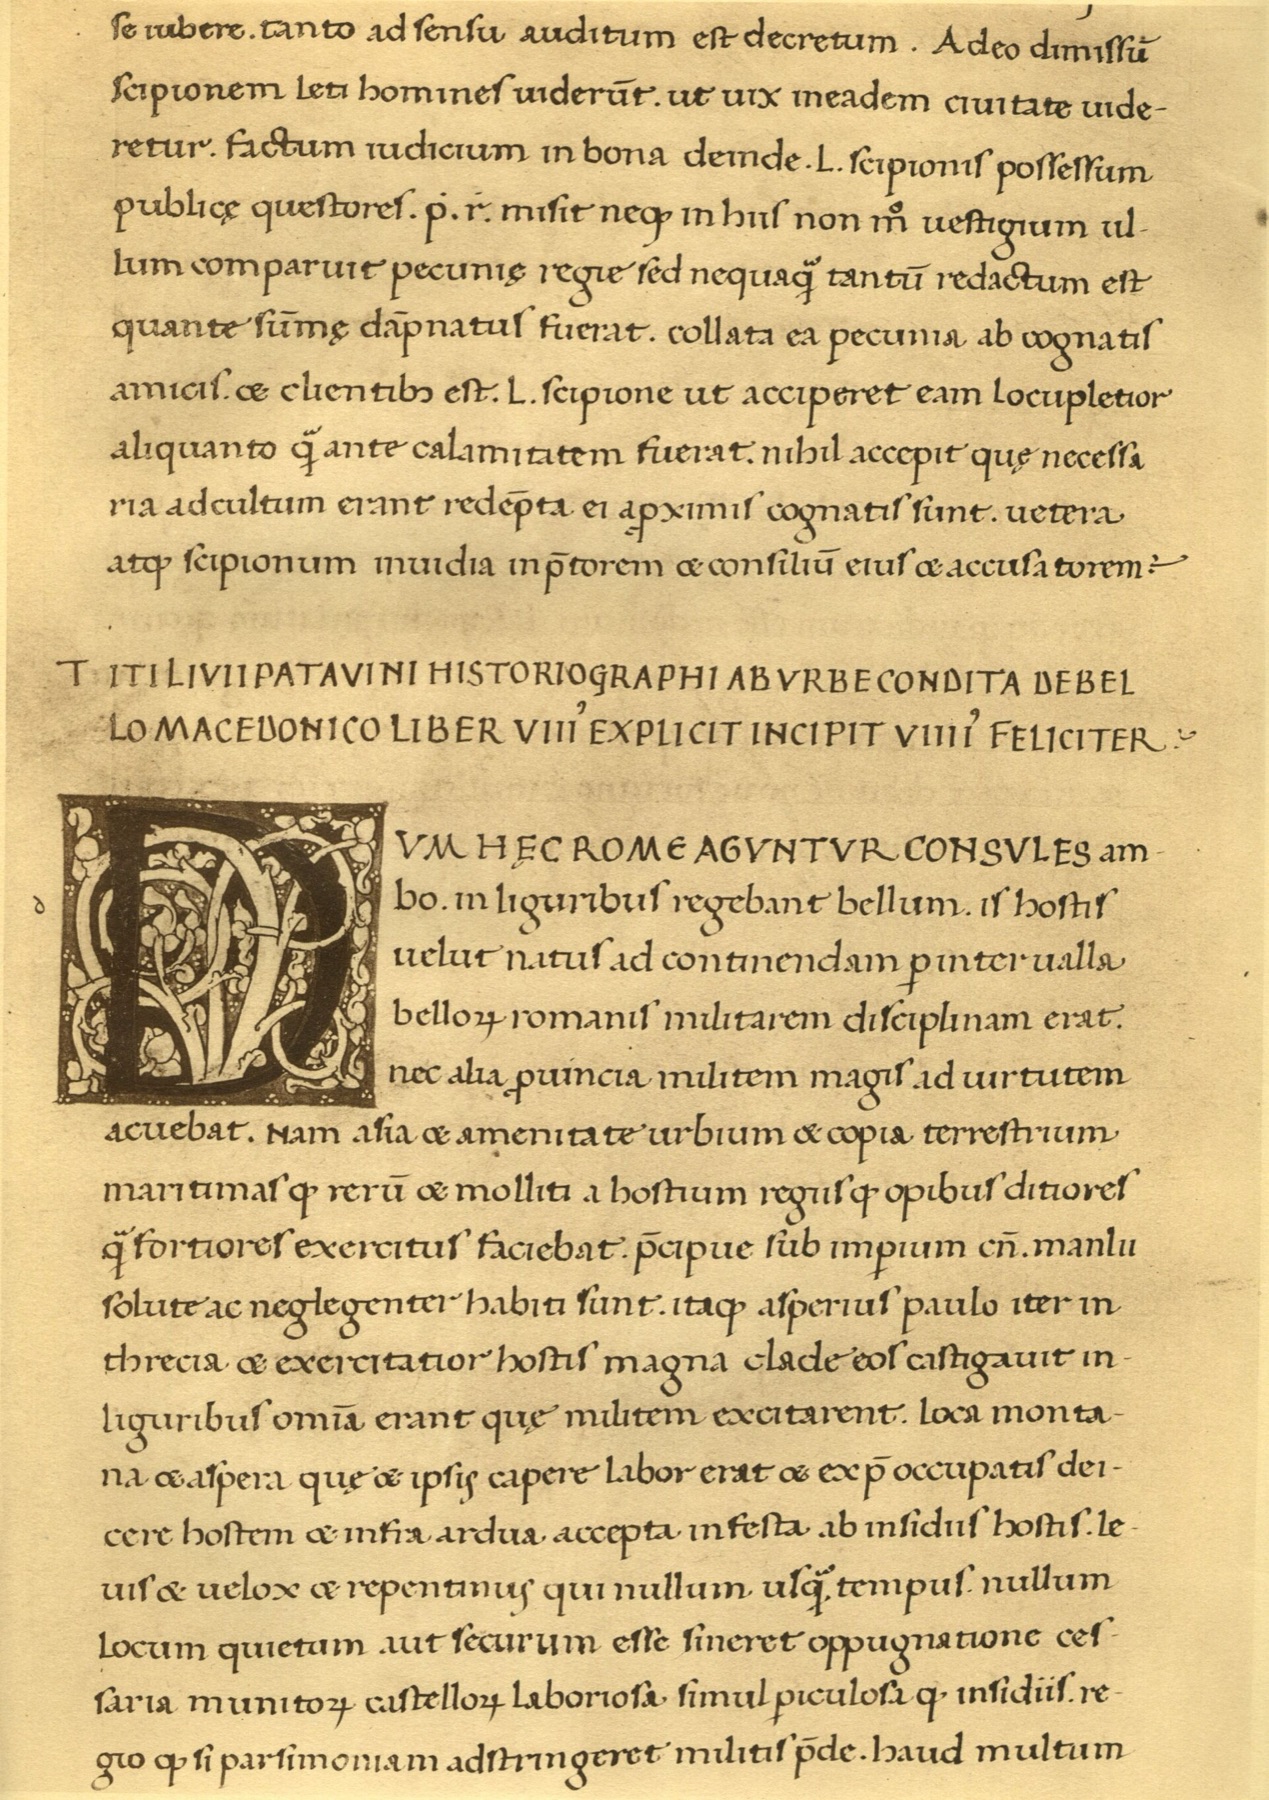 se iubere. tanto ad sensu auditum est decretum. Adeo dimissū
scipionem leti homines uiderūt. ut uix ineadem ciuitate uide-
retur. factum iudicium in bona deinde. L. scipionis possessum
publicę questores. p. r. misit neqꝫ in hiis non mͦ uestigium ul-
lum comparuit pecunię regie sed nequaꝙ̃ tantū redactum est
quante sūmę dāpnatus fuerat. collata ea pecunia ab cognatis
amicis. & clientibꝫ est. L. scipione ut acciperet eam locupletior
aliquanto ꝙ̃ ante calamitatem fuerat. nihil accepit quę necessa
ria adcultum erant redēpta ei aꝓximis cognatis sunt. uetera
atqꝫ scipionum inuidia inp̄torem & consiliū eius & accusatorem
TITI LIVII PATAVINI HISTORIOGRAPHI AB VRBE CONDITA DE BEL
LO MACEDONICO LIBER VIII' EXPLICIT INCIPIT VIIII' FELICITER
d
DVM HĘC ROME AGVNTVR CONSVLES am-
bo. in liguribus regebant bellum. is hostis
uelut natus ad continendam ꝑinterualla
belloꝝ romanis militarem disciplinam erat.
nec alia ꝓuincia militem magis ad uirtutem
acuebat. Nam asia & amenitate urbium & copia terrestrium
maritimasqꝫ rerū & molliti a hostium regiisqꝫ opibus ditiores
ꝙ̃ fortiores exercitus faciebat. p̄cipue sub imꝑium cn̄. manlii
solute ac neglegenter habiti sunt. itaqꝫ asperius paulo iter in
threcia & exercitatior hostis magna clade eos castigauit in-
liguribus omīa erant quę militem excitarent. loca monta-
na & aspera quę & ipsis capere labor erat & ex p̄occupatis dei-
cere hostem & infra ardua accepta infesta ab insidiis hostis. le-
uis & uelox & repentinus qui nullum usꝙ̃ tempus. nullum
locum quietum aut securum esse sineret oppugnatione ces-
saria munitoꝝ castelloꝝ laboriosa simul ꝑiculosa qꝫ insidiis. re-
gio qꝫ si parsimoniam adstringeret militis p̄de. haud multum